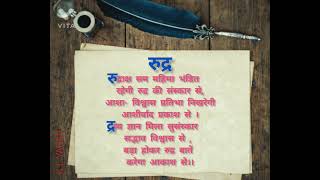 VITA
रुद्र
रुद्राक्ष सम महिमा मंडित
रहेगी रुद्र की संस्कार से,
आशा- विश्वास प्रतिभा निखरेगी
आशीर्वाद प्रकाश से ।
द्रव्य ज्ञान मिला सुसंस्कार
सद्भाव विश्वास से ,
बड़ा होकर रुद्र बातें
करेगा आकाश से।।